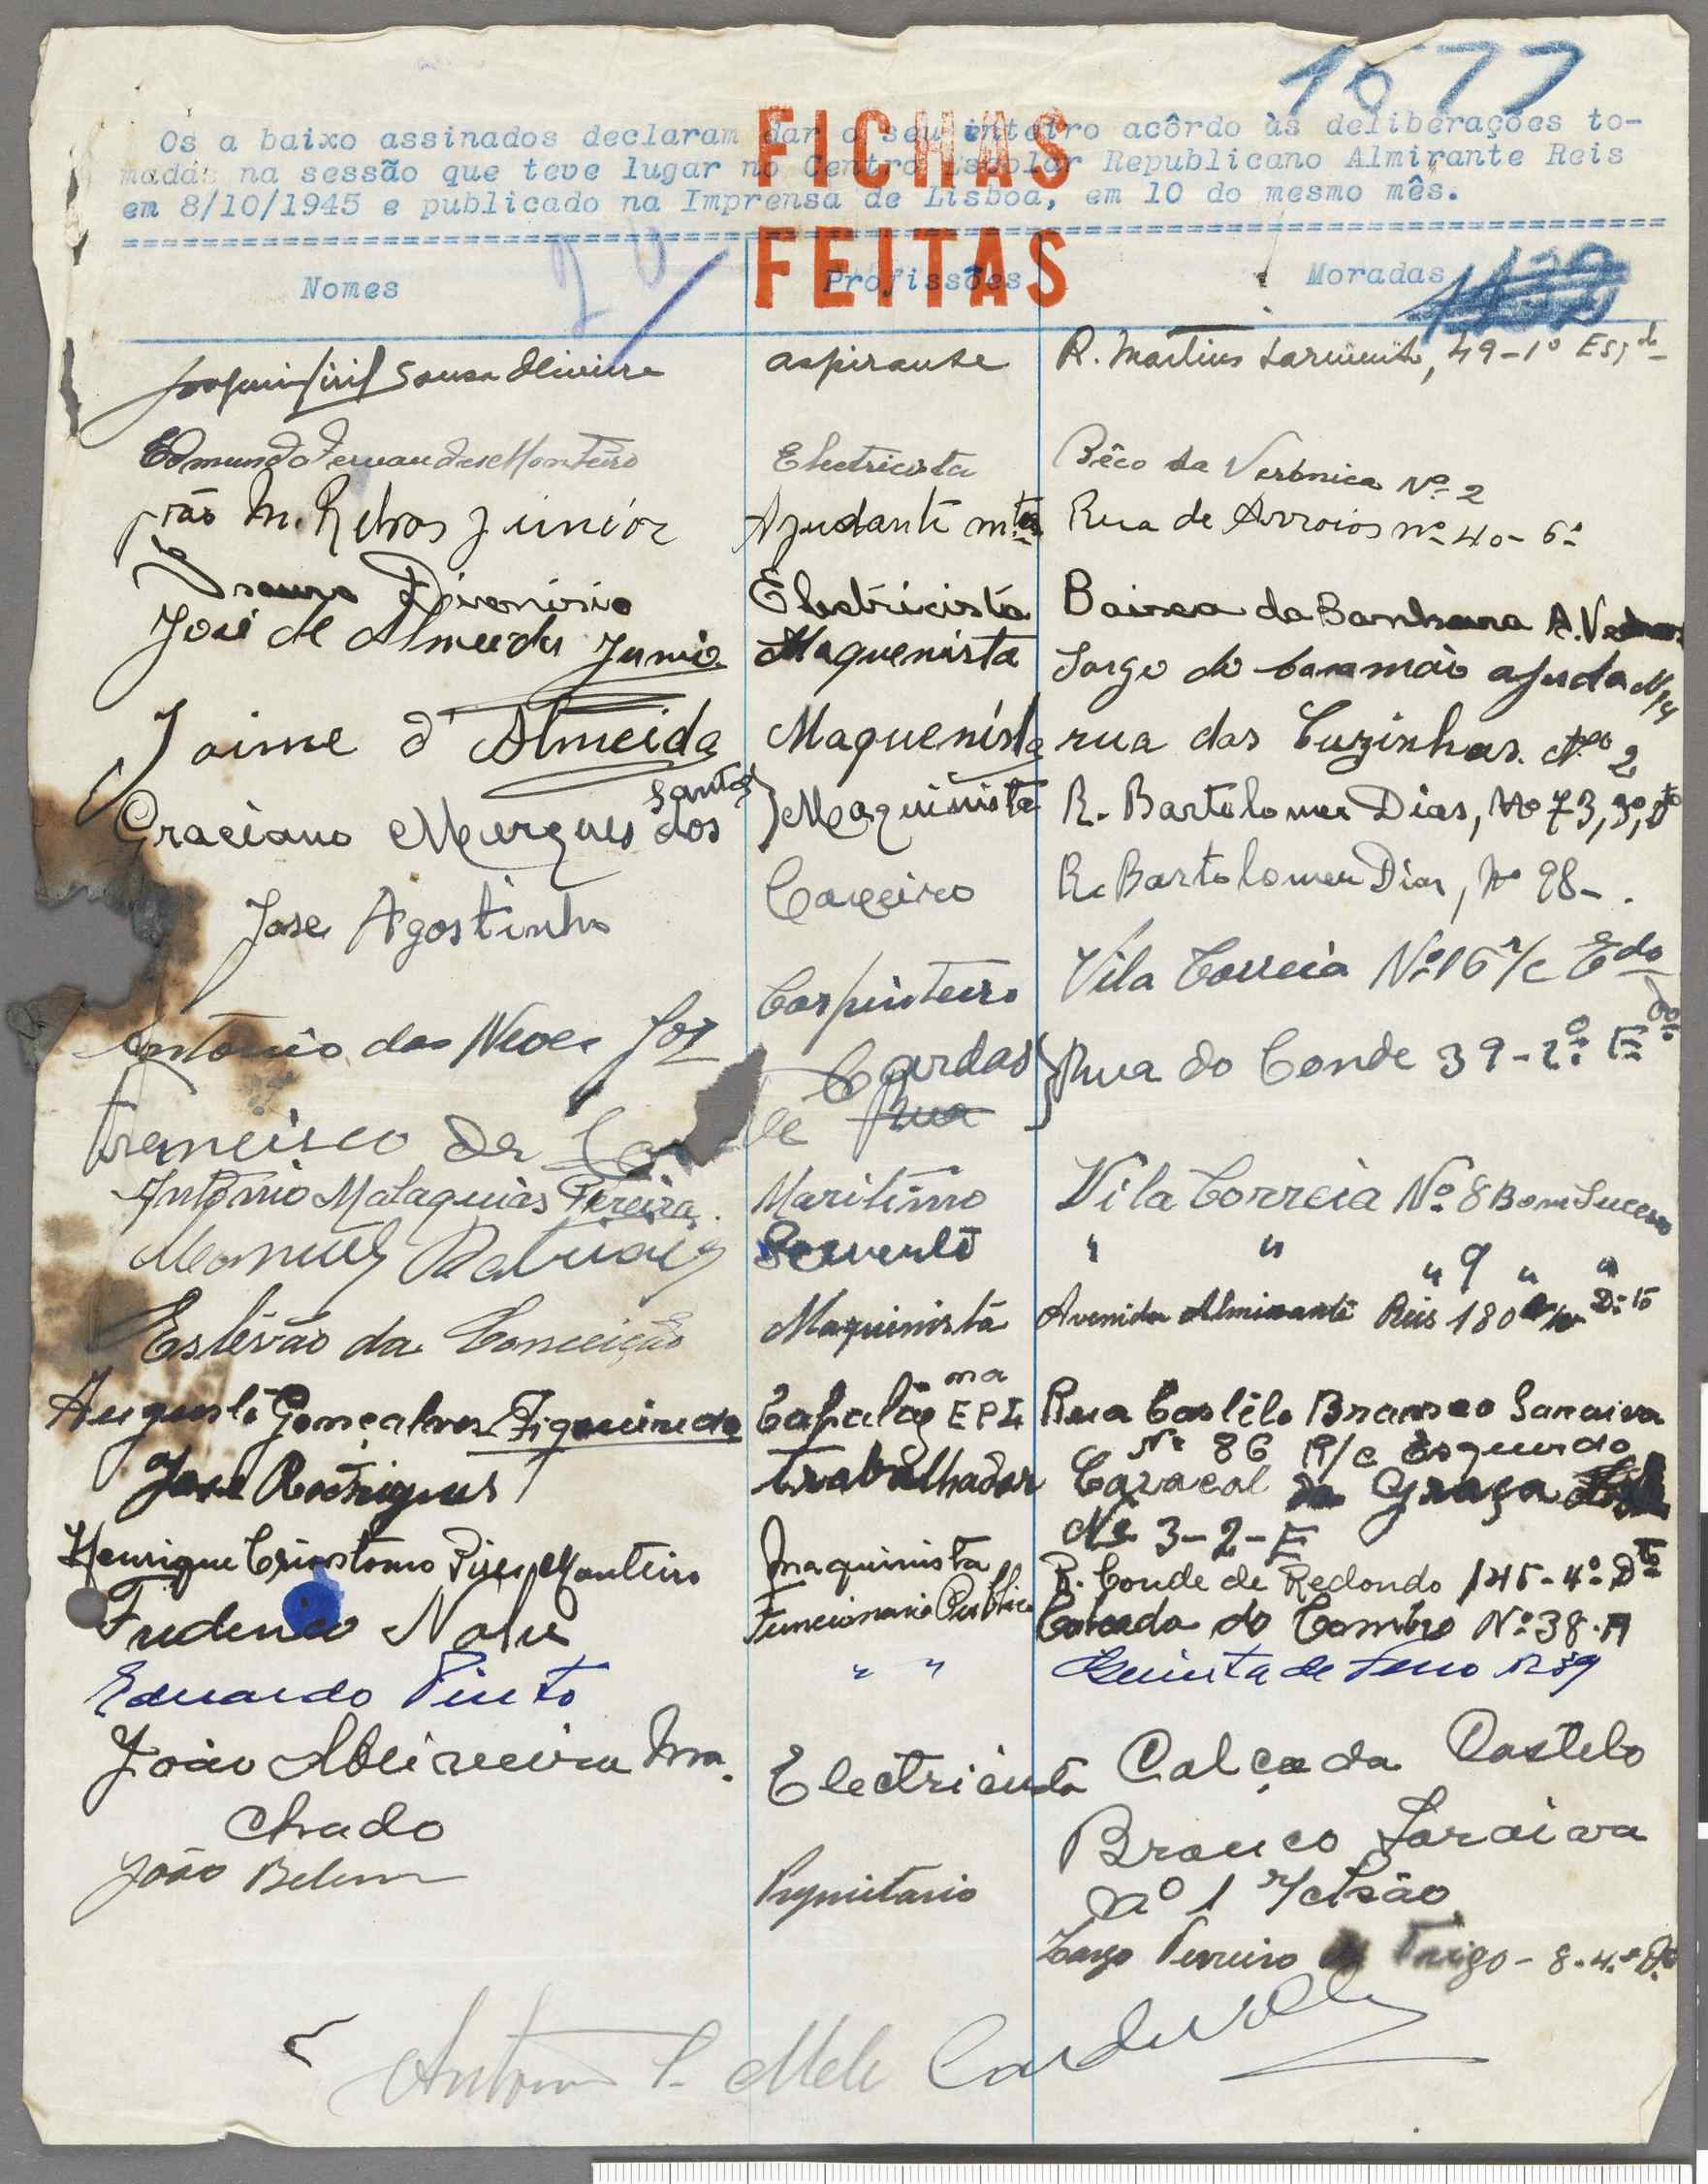 1677
Os a baixo assinados declaram dar o seu inteiro acôrdo às deliberações to-
madas na sessão que teve lugar no Centro Escolar Republicano Almirante Reis
em 8/10/1945 e publicado na Imprensa de Lisboa, em 10 do mesmo mês.
FICHAS
FEITAS
Nomes Profissões Moradas
Sousa Oliveira aspirante R. Martins Sarmento, 49-1º Esqdo
Edmundo Fernandes Monteiro Electricista Bêco da Verónica Nº 2
João M. Junior Ajudante Rua de Arroios nº 40-6º
Dionisio Electricista Baixa da Banheira A. Vedros
José de Almeida Junio Maquenista Largo do ajuda
Jaime d'Almeida Maquenista rua das Cuzinhas. Nº 2
Graciano Marques dos Santos } Maquinista R. Bartolomeu Dias, Nº 73, 3º, Dto
Jose Agostinho R. Bartolomeu Dias, Nº 98-.
Antonio das Neves Carpinteiro Vila Correia Nº 16 r/c Edo
Francisco da Guardas } Rua do Conde 39-2º
Rua
António Malaquias Pereira Maritimo Vila Correia Nº 8 Bom Sucesso
Manuel Servente " " " 9 " "
Estêvão da Conceição Maquinista Avenida Almirante Reis 180 Dto
Augusto Gonçalves Figueiredo Capataz na EPL Rua Castelo Branco Saraiva
Nº 86 R/c Esquerdo
José Rodrigues trabalhador Caracal da Graça
Nº 3-2-E
Henrique Crisostomo Pires Monteiro maquinista R. Conde de Redondo 145-4º Dto
Funcionario Publico Calcada do Combro Nº 38-A
Eduardo Pinto " " Quinta de
João Ma.
chado Electricista Calçada Castelo
Branco Saraiva
nº 1 r/chão
João Belem Propietario
Largo Terreiro Trigo - 8-4º
Antonio